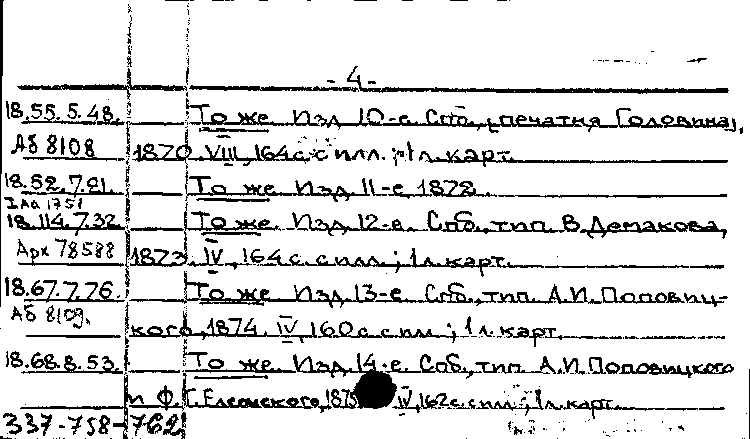 - 4 -
18.55.5.48. То же. Изд. 10-е. Спб., печатня Головина,
Аб 8108 1870. VIII, 164 с. с илл.; 1 л. карт.
18.52.7.21. То же. Изд. 11-е. 1872.
IАа 1751
18.114.7.32 То же. Изд. 12-е. Спб., тип. В. Демакова,
Арх 78588 1873. IV, 164 с. с илл.; 1 л. карт.
18.67.7.76. То же. Изд. 13-е. Спб., тип. А.И. Поповиц-
Аб 8109. кого, 1874. IV, 160 с. с ил.; 1 л. карт.
18.68.8.53. То же. Изд. 14-е. Спб., тип. А.И. Поповицкого
и Ф. Г. 1875 IV, 162 с. с илл.; 1 л. карт.
337-758-762